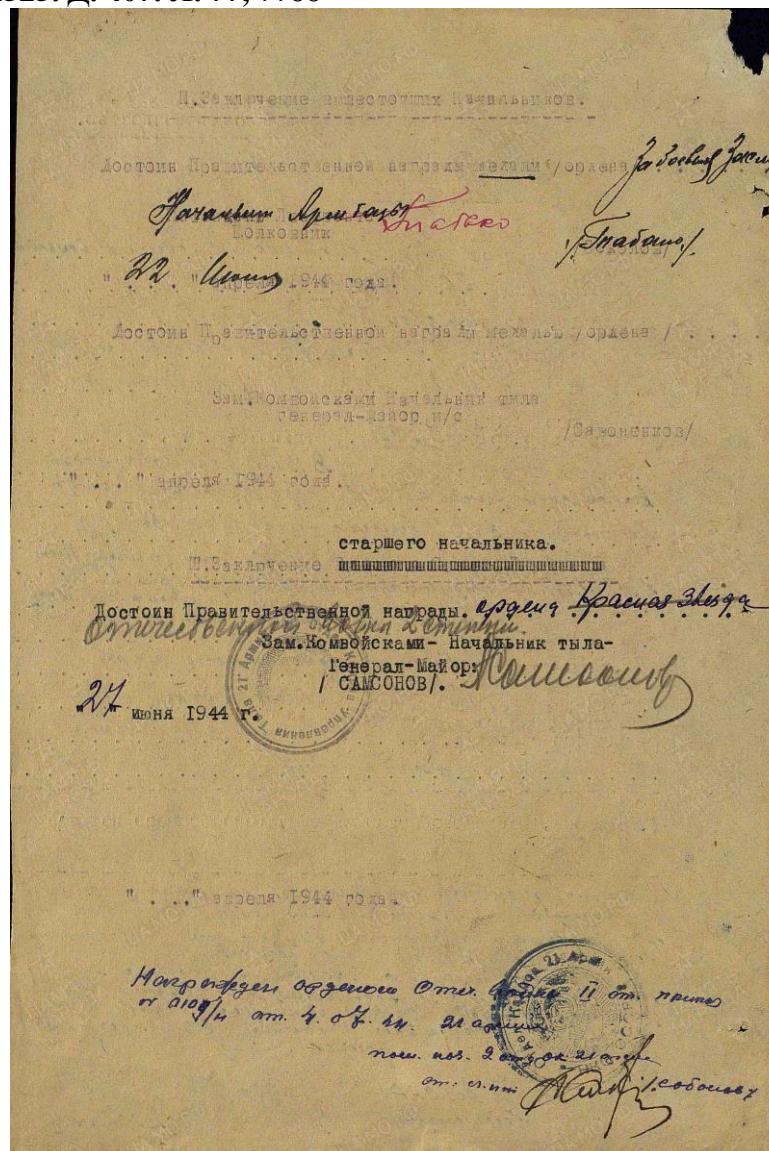 П.Заключение вышестоящих Начальников.
Достоин Правительственной награды медали /ордена За боевые
Начальник Армбазы
Полковник
"22" Июня апреля 1944 года.
Достоин Правительственной награды медалью /ордена / . . . .
Зам.Комвойсками Начальник тыла
генерал-майор и/с
/Савоненков/
" . . . " апреля 1944 года.
старшего начальника.
Ш.Заключение
Достоин Правительственной награды. ордена Красная Звезда
Отечественной война 2 степени.
Зам.Комвойсками- Начальник тыла-
Генерал-Майор:
/ САМСОНОВ/.
"27" июня 1944 г.
Управления Тыла 21 Армии
" . . ." апреля 1944 года
Награжден орденом Отеч. война II ст. приказ
от 4.07. 21 армии
21 армии